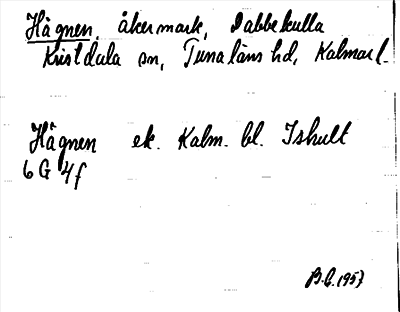 Hägnen, åkermark, Dabbekulla
Kristdala sn, Tunaläns hd, Kalmar l.
Hägnen ek. Kalm. bl. Ishult
6 G 4f
B.G. 1957